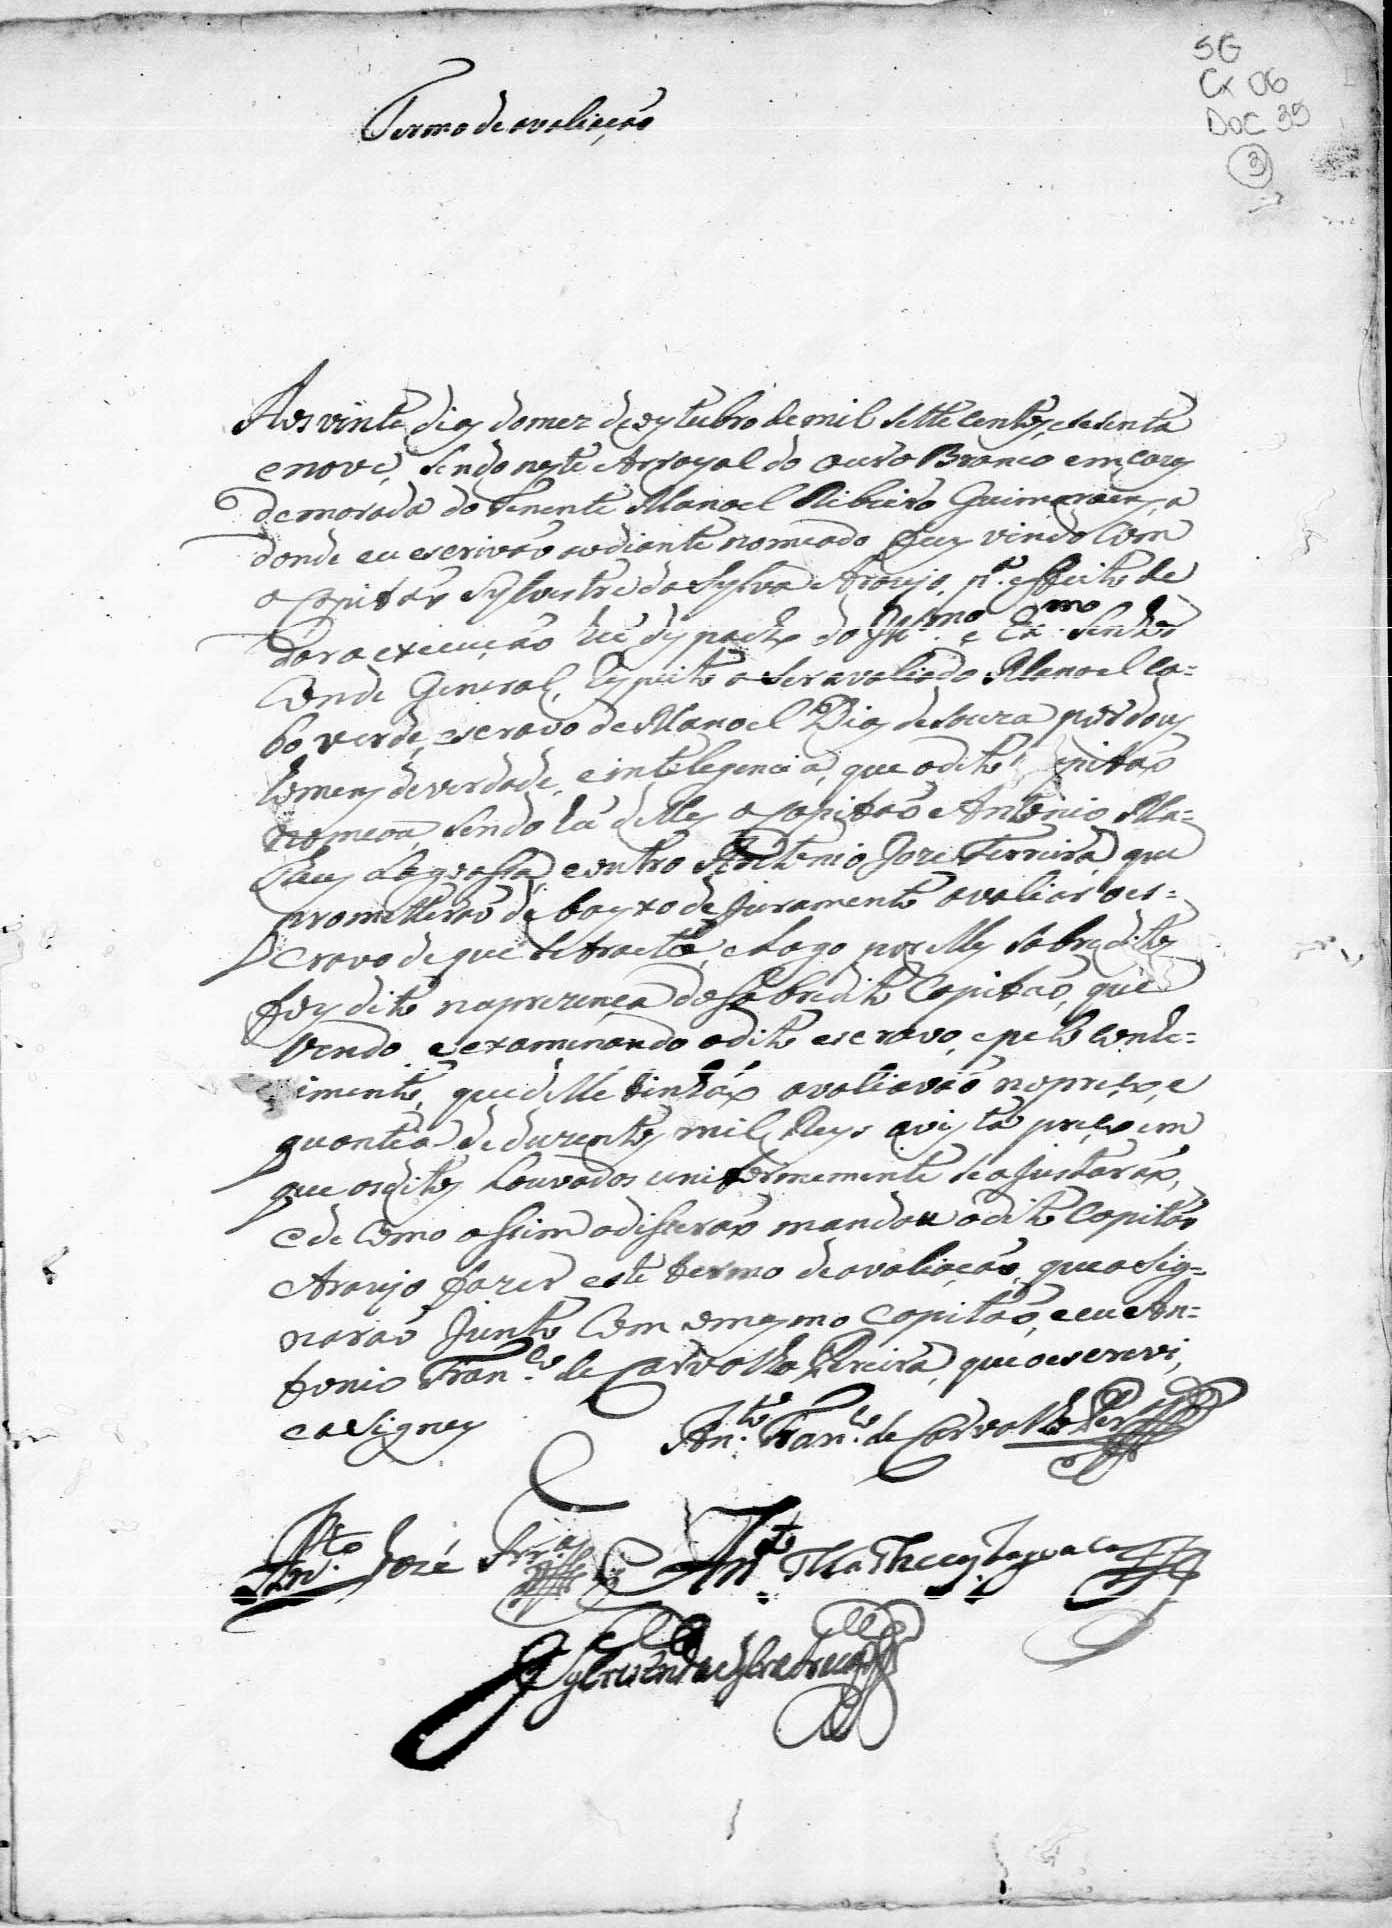 SG
Cx 06
Doc 39
3
Termo de avaliação
Aos vinte dias do mez de oytubro de mil sette centos, e sesenta
e nove, sendo neste Arrayal do ouro Branco em cazas
de morada do Tenente Manoel Ribeiro Guimaraens, a
donde eu escrivão ao diante nomeado fuy vindo com
o Capitão Sylvestre da Sylva Araujo, pª. effeito de
dar a execução hũ dy pacho do Illmo. e Exmo. Senhor
Conde General, respeito a ser avaliado Manoel Ca=
bo verde, escravo de Manoel Dias de Souza por dous
homens de verdade, e intelegencia, que o dito Capitão
nomeou, sendo hũ delles o Capitão Antonio Ma=
theus Lagoassa, e outro Antonio Joze Ferreira, que
prometterão de bayxo de juramento avaliar o es=
cravo de que se tracta, e Logo por elles sobreditos
foy dito na prezenca do sobredito Capitão, que
vendo, e examinando o dito escravo, e pelo conhe=
cimento, que delle tinhão avaliavão no preço, e
quantia de duzentos mil Reys a vista preço em
que os ditos Louvados uniformemente se ajustarão,
e de como assim o disserão mandou o dito Capitão
Araujo fazer este termo de avaliação, que asig=
narão junto com o mesmo Capitão, e eu An=
tonio Franco. de Carvalho Pereira, que o escrevi,
e asigney
Anto. Franco. de Carvalho Pera
Anto. José Frra
Anto. Matheus Lagoaça
Sylvestre da Sylva Araujo